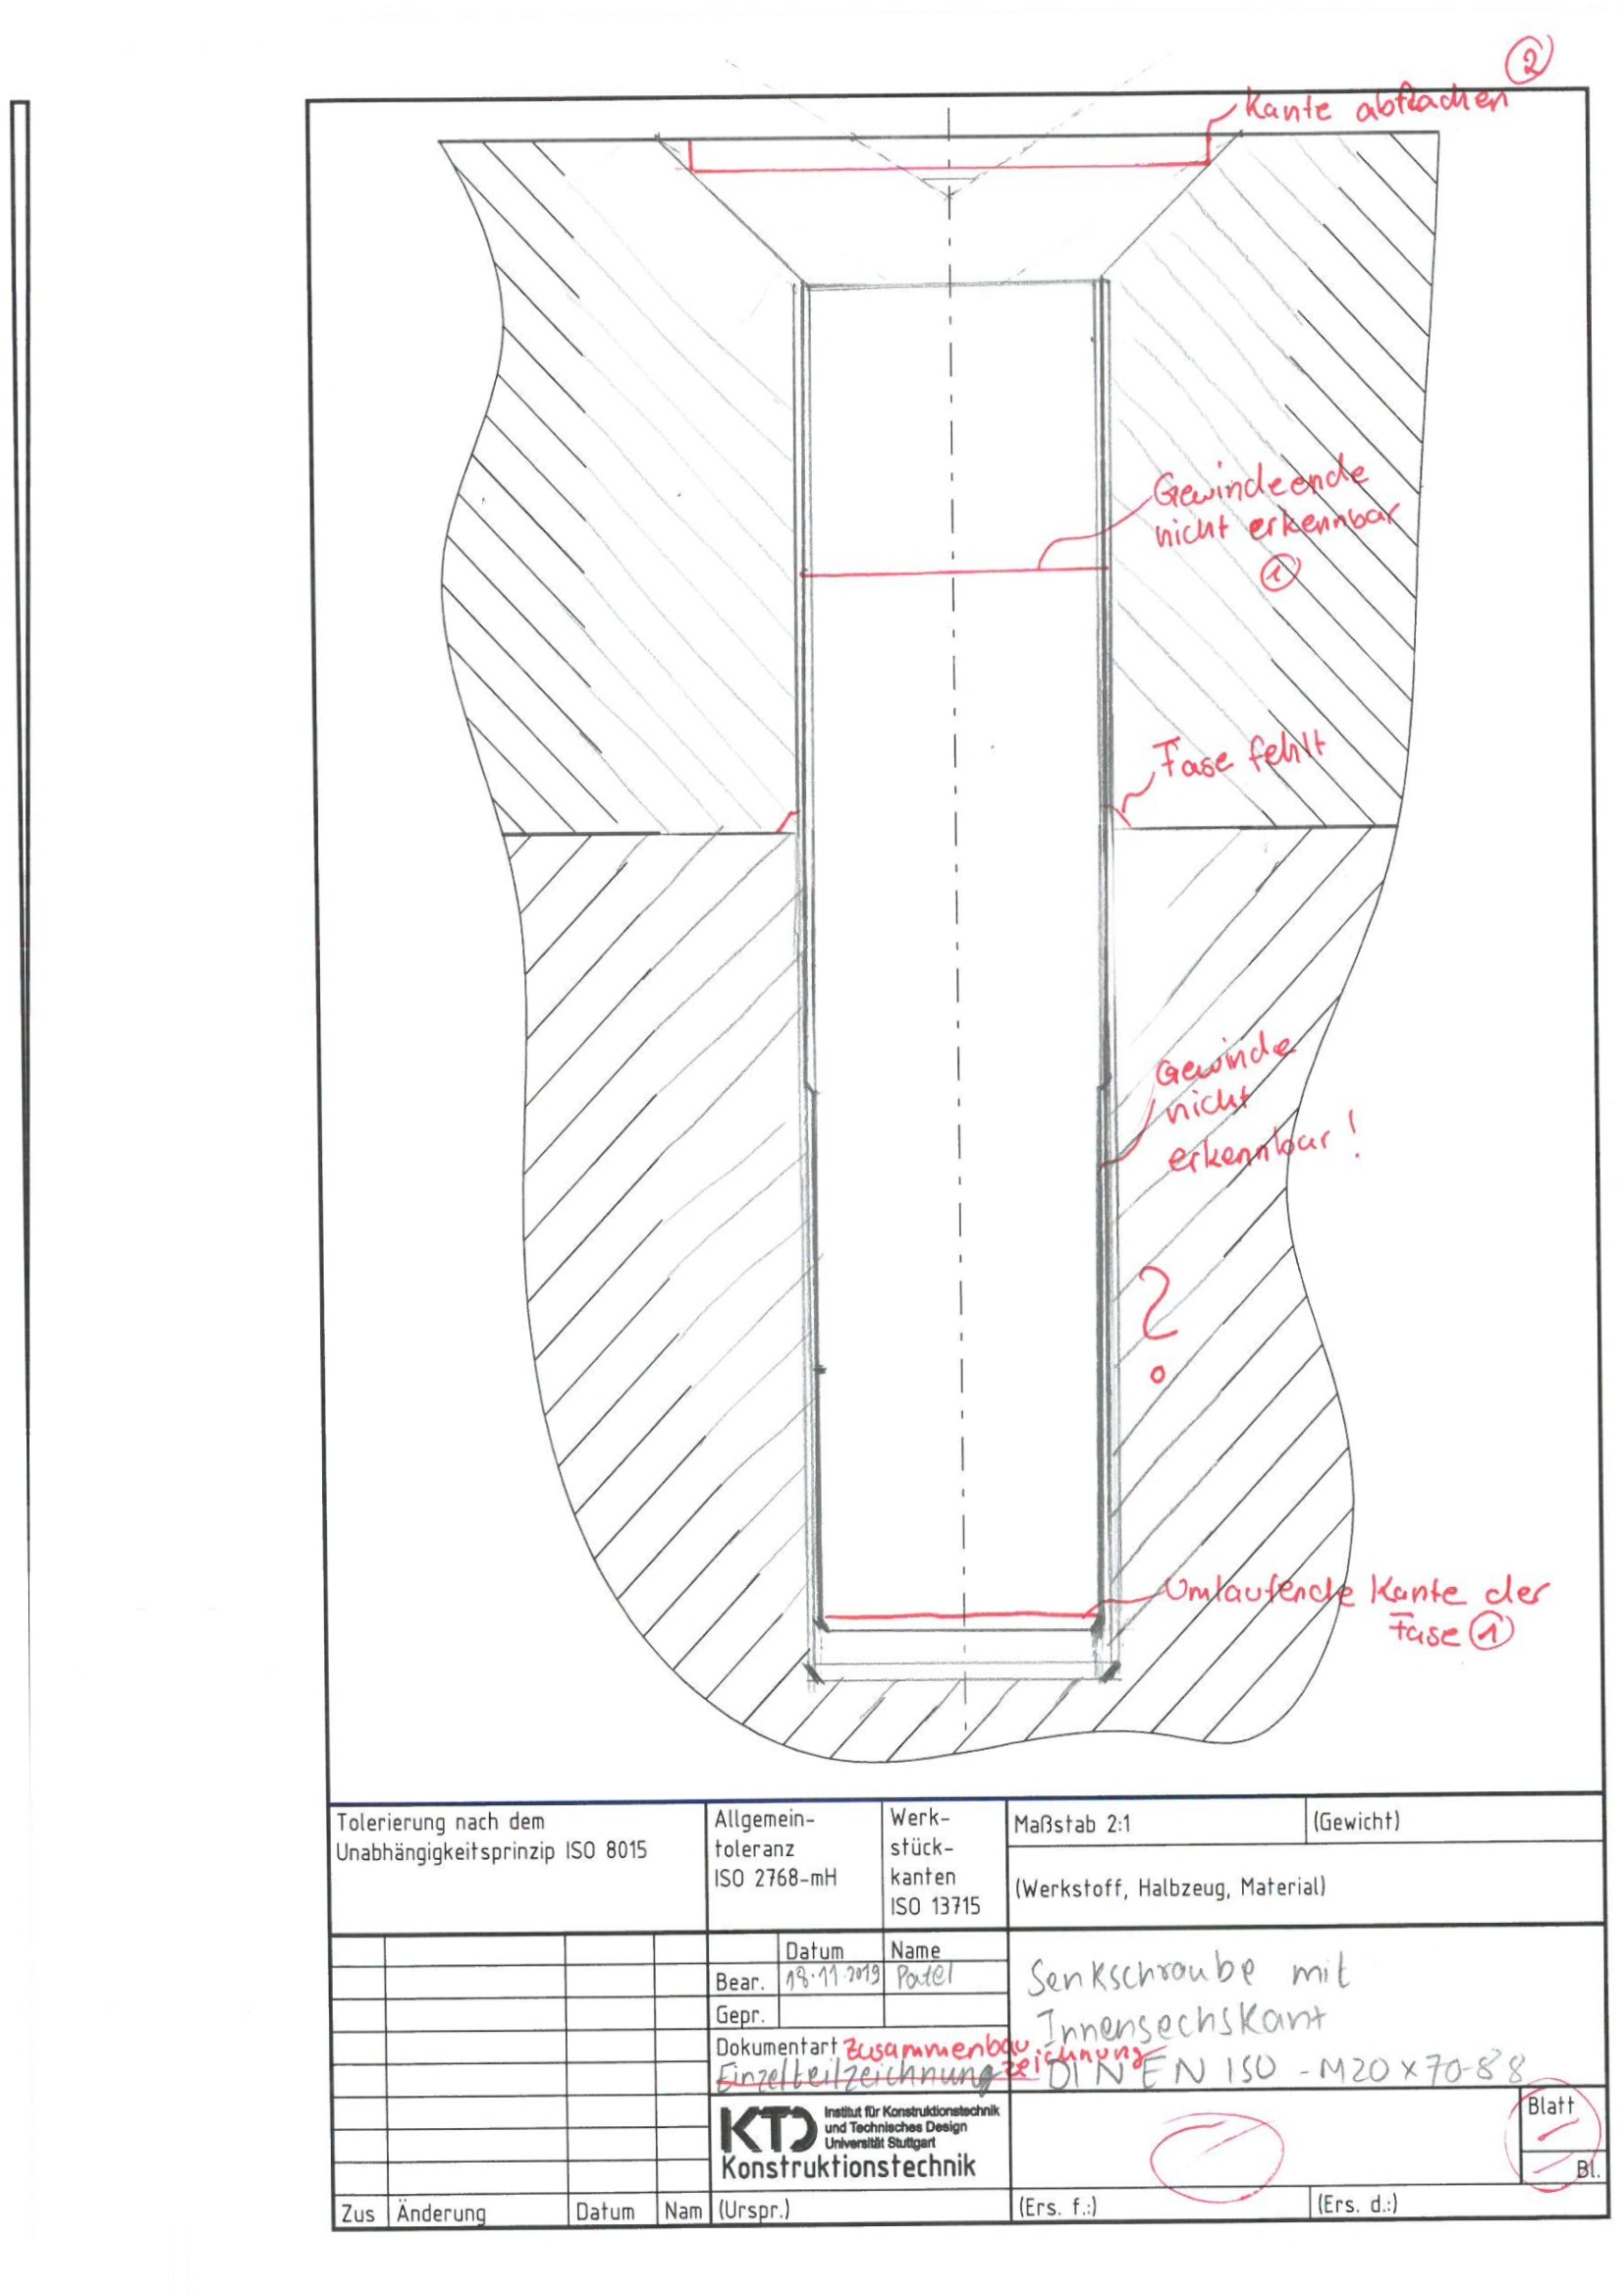 ②
Kante abflachen
Gewindeende
nicht erkennbar
①
Fase fehlt
Gewinde
nicht
erkennbar!
?
Umlaufende Kante der
Fase ①
Tolerierung nach dem
Unabhängigkeitsprinzip ISO 8015
Allgemein-
toleranz
ISO 2768-mH
Werk-
stück-
kanten
ISO 13715
Maßstab 2:1
(Gewicht)
(Werkstoff, Halbzeug, Material)
Datum Name
Bear. 18.11.2019 Patel
Gepr.
Senkschraube mit
Innensechskant
DIN EN ISO - M20 x 70-88
Dokumentart Zusammenbau
zeichnung
Einzelteilzeichnung
KTD Institut für Konstruktionstechnik
und Technisches Design
Universität Stuttgart
Konstruktionstechnik
Blatt
Bl.
Zus Änderung Datum Nam (Urspr.) (Ers. f.:) (Ers. d.:)